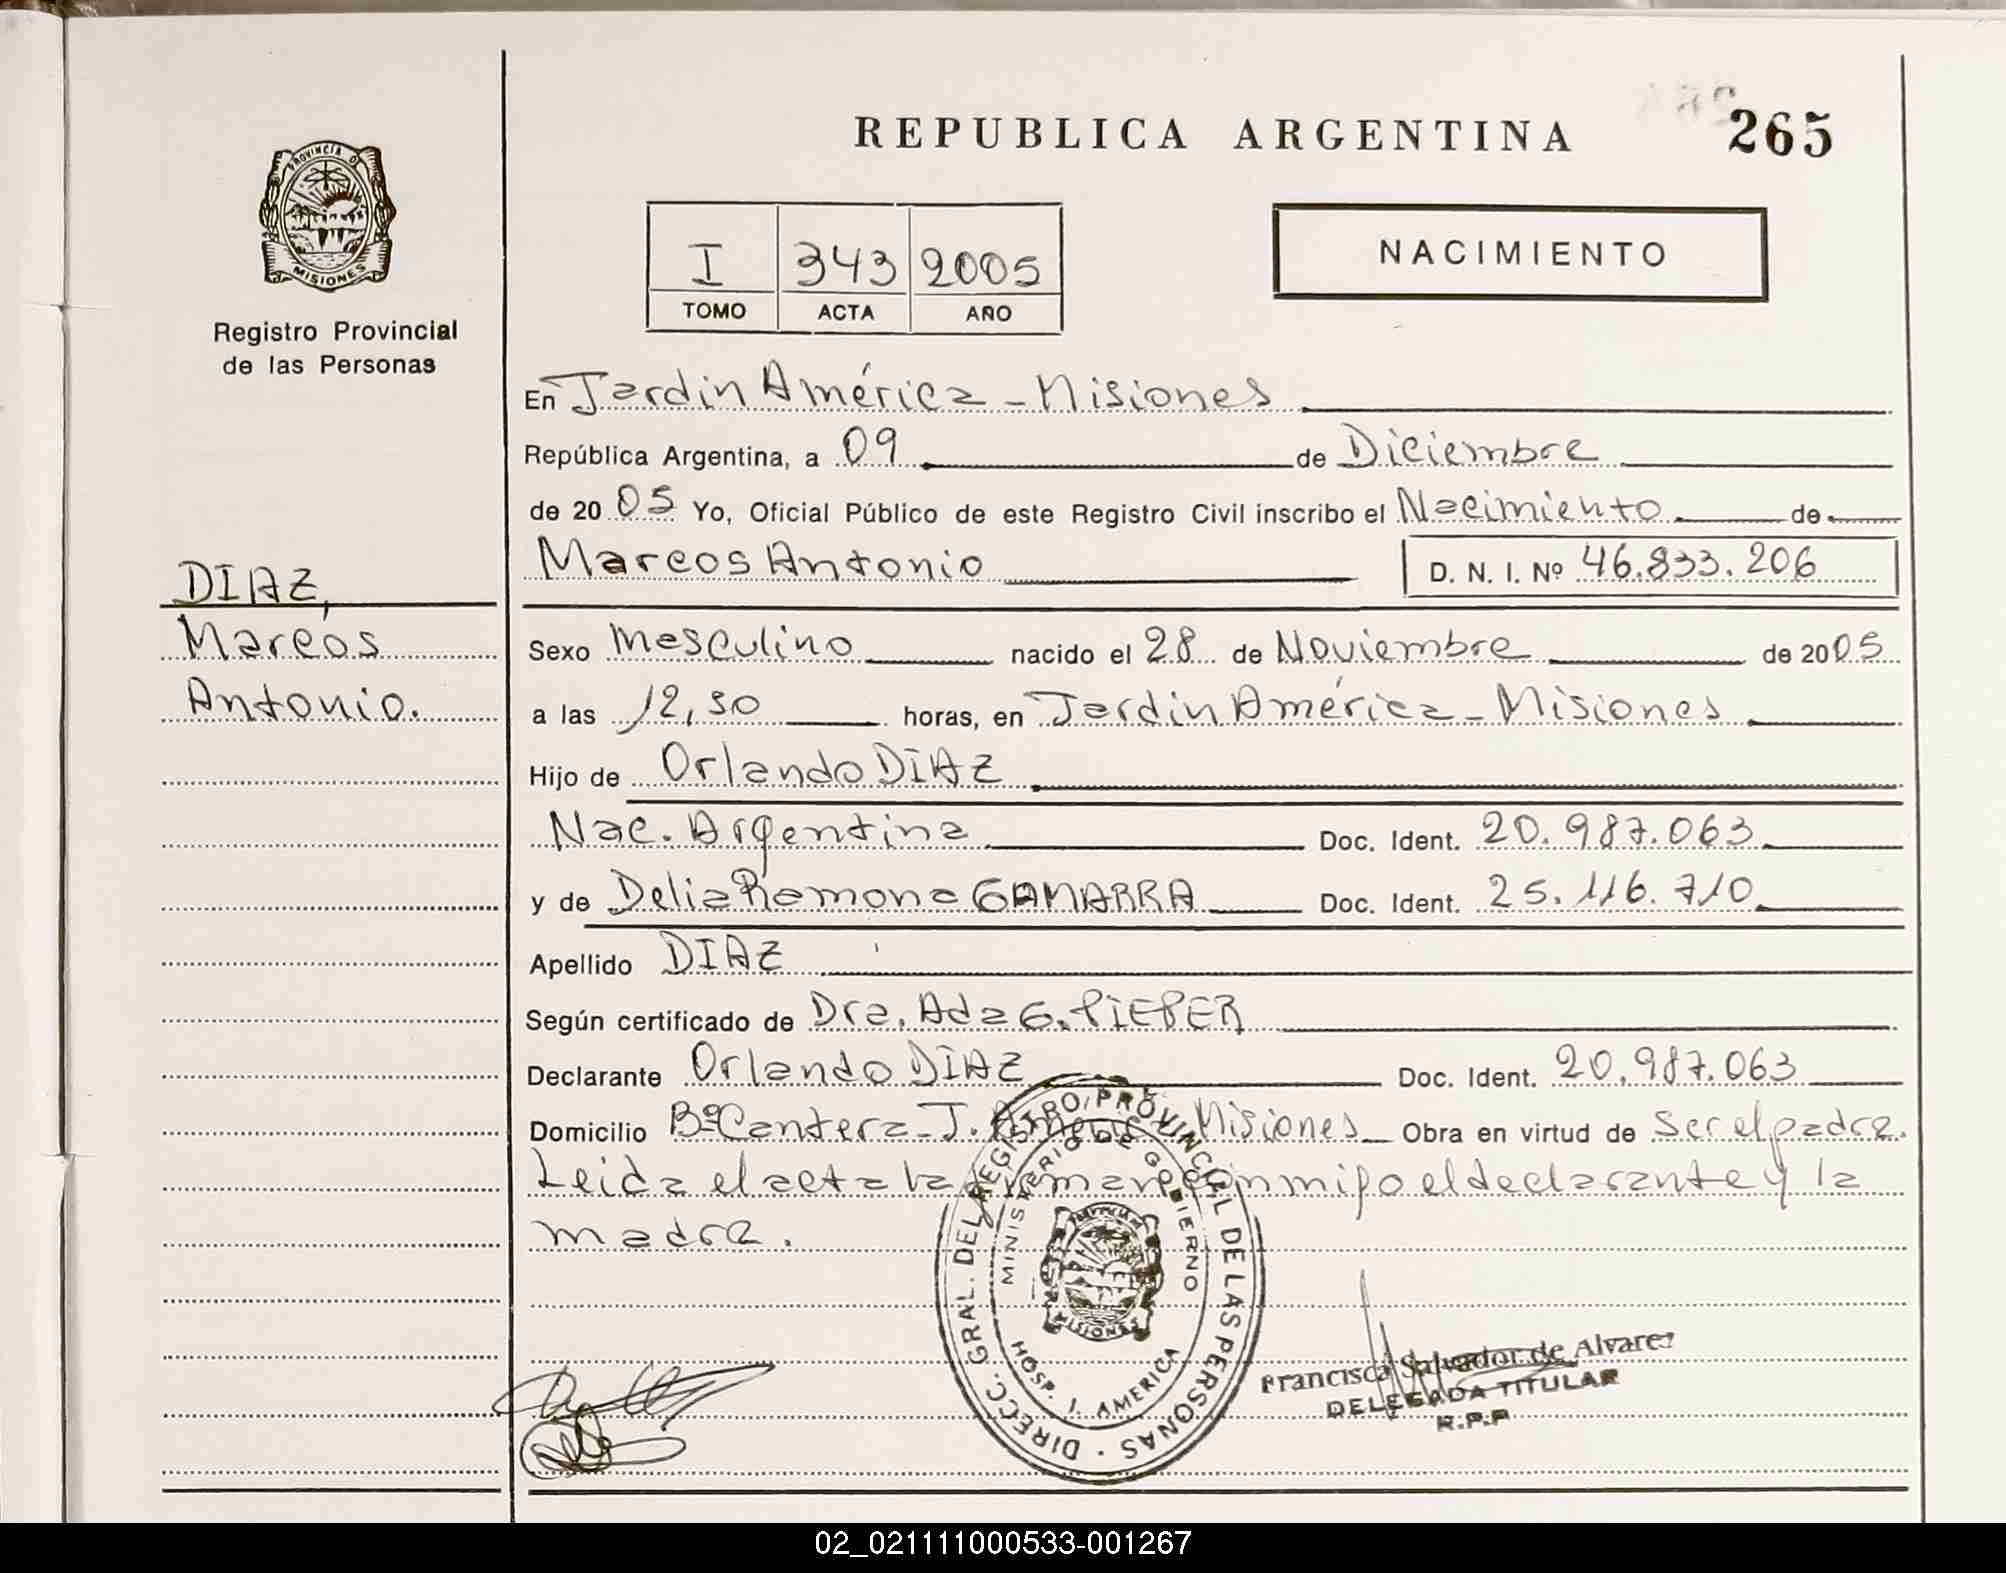 REPUBLICA ARGENTINA
265
PROVINCIA DE
MISIONES
Registro Provincial
de las Personas
I 343 2005
TOMO ACTA AÑO
NACIMIENTO
En Jardin América - Misiones
República Argentina, a 09 de Diciembre
de 2005 Yo, Oficial Público de este Registro Civil inscribo el Nacimiento de
Marcos Antonio D. N. I. Nº 46.833.206
DIAZ,
Marcos
Antonio.
Sexo Masculino nacido el 28 de Noviembre de 2005
a las 12,30 horas, en Jardin América - Misiones
Hijo de Orlando DIAZ
Nac. Argentina Doc. Ident. 20.987.063
y de Delia Ramona GAMARRA Doc. Ident. 25.116.710
Apellido DIAZ
Según certificado de Dra. Ada G. PIEPER
Declarante Orlando DIAZ Doc. Ident. 20.987.063
Domicilio Bº Cantera - J. América - Misiones Obra en virtud de Ser el padre.
Leida el acta la firman con migo el declarante y la
madre.
DIRECC. GRAL. DEL REGISTRO PROVINCIAL DE LAS PERSONAS
MINISTERIO DE GOBIERNO
MISIONES
HOSP. J. AMERICA
Francisca Salvador de Alvarez
DELEGADA TITULAR
R.P.P
02_021111000533-001267